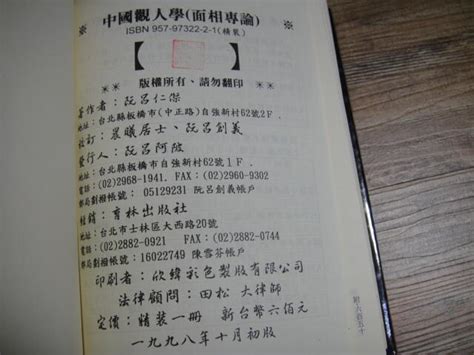 中國觀人學(面相專論)
ISBN 957-97322-2-1(精裝)
版權所有、請勿翻印
著作者:阮呂仁傑
地址:台北縣板橋市(中正路)自強新村62號2F.
校訂:晨曦居士、阮呂創義
發行人:阮呂阿陂
地址:台北縣板橋市自強新村62號1F.
電話:(02)2968-1941. FAX:(02)2960-9302
郵局劃撥帳號: 05129231 阮呂創義帳戶
經銷:育林出版社
地址:台北市士林區大西路20號
電話:(02)2882-0921 FAX:(02)2882-0744
郵局劃撥帳號:16022749 陳雪芬帳戶
印刷者:欣緯彩色製版有限公司
法律顧問:田松 大律師
定價:精裝一冊 新台幣六佰元
一九九八年十月初版
附六百五十